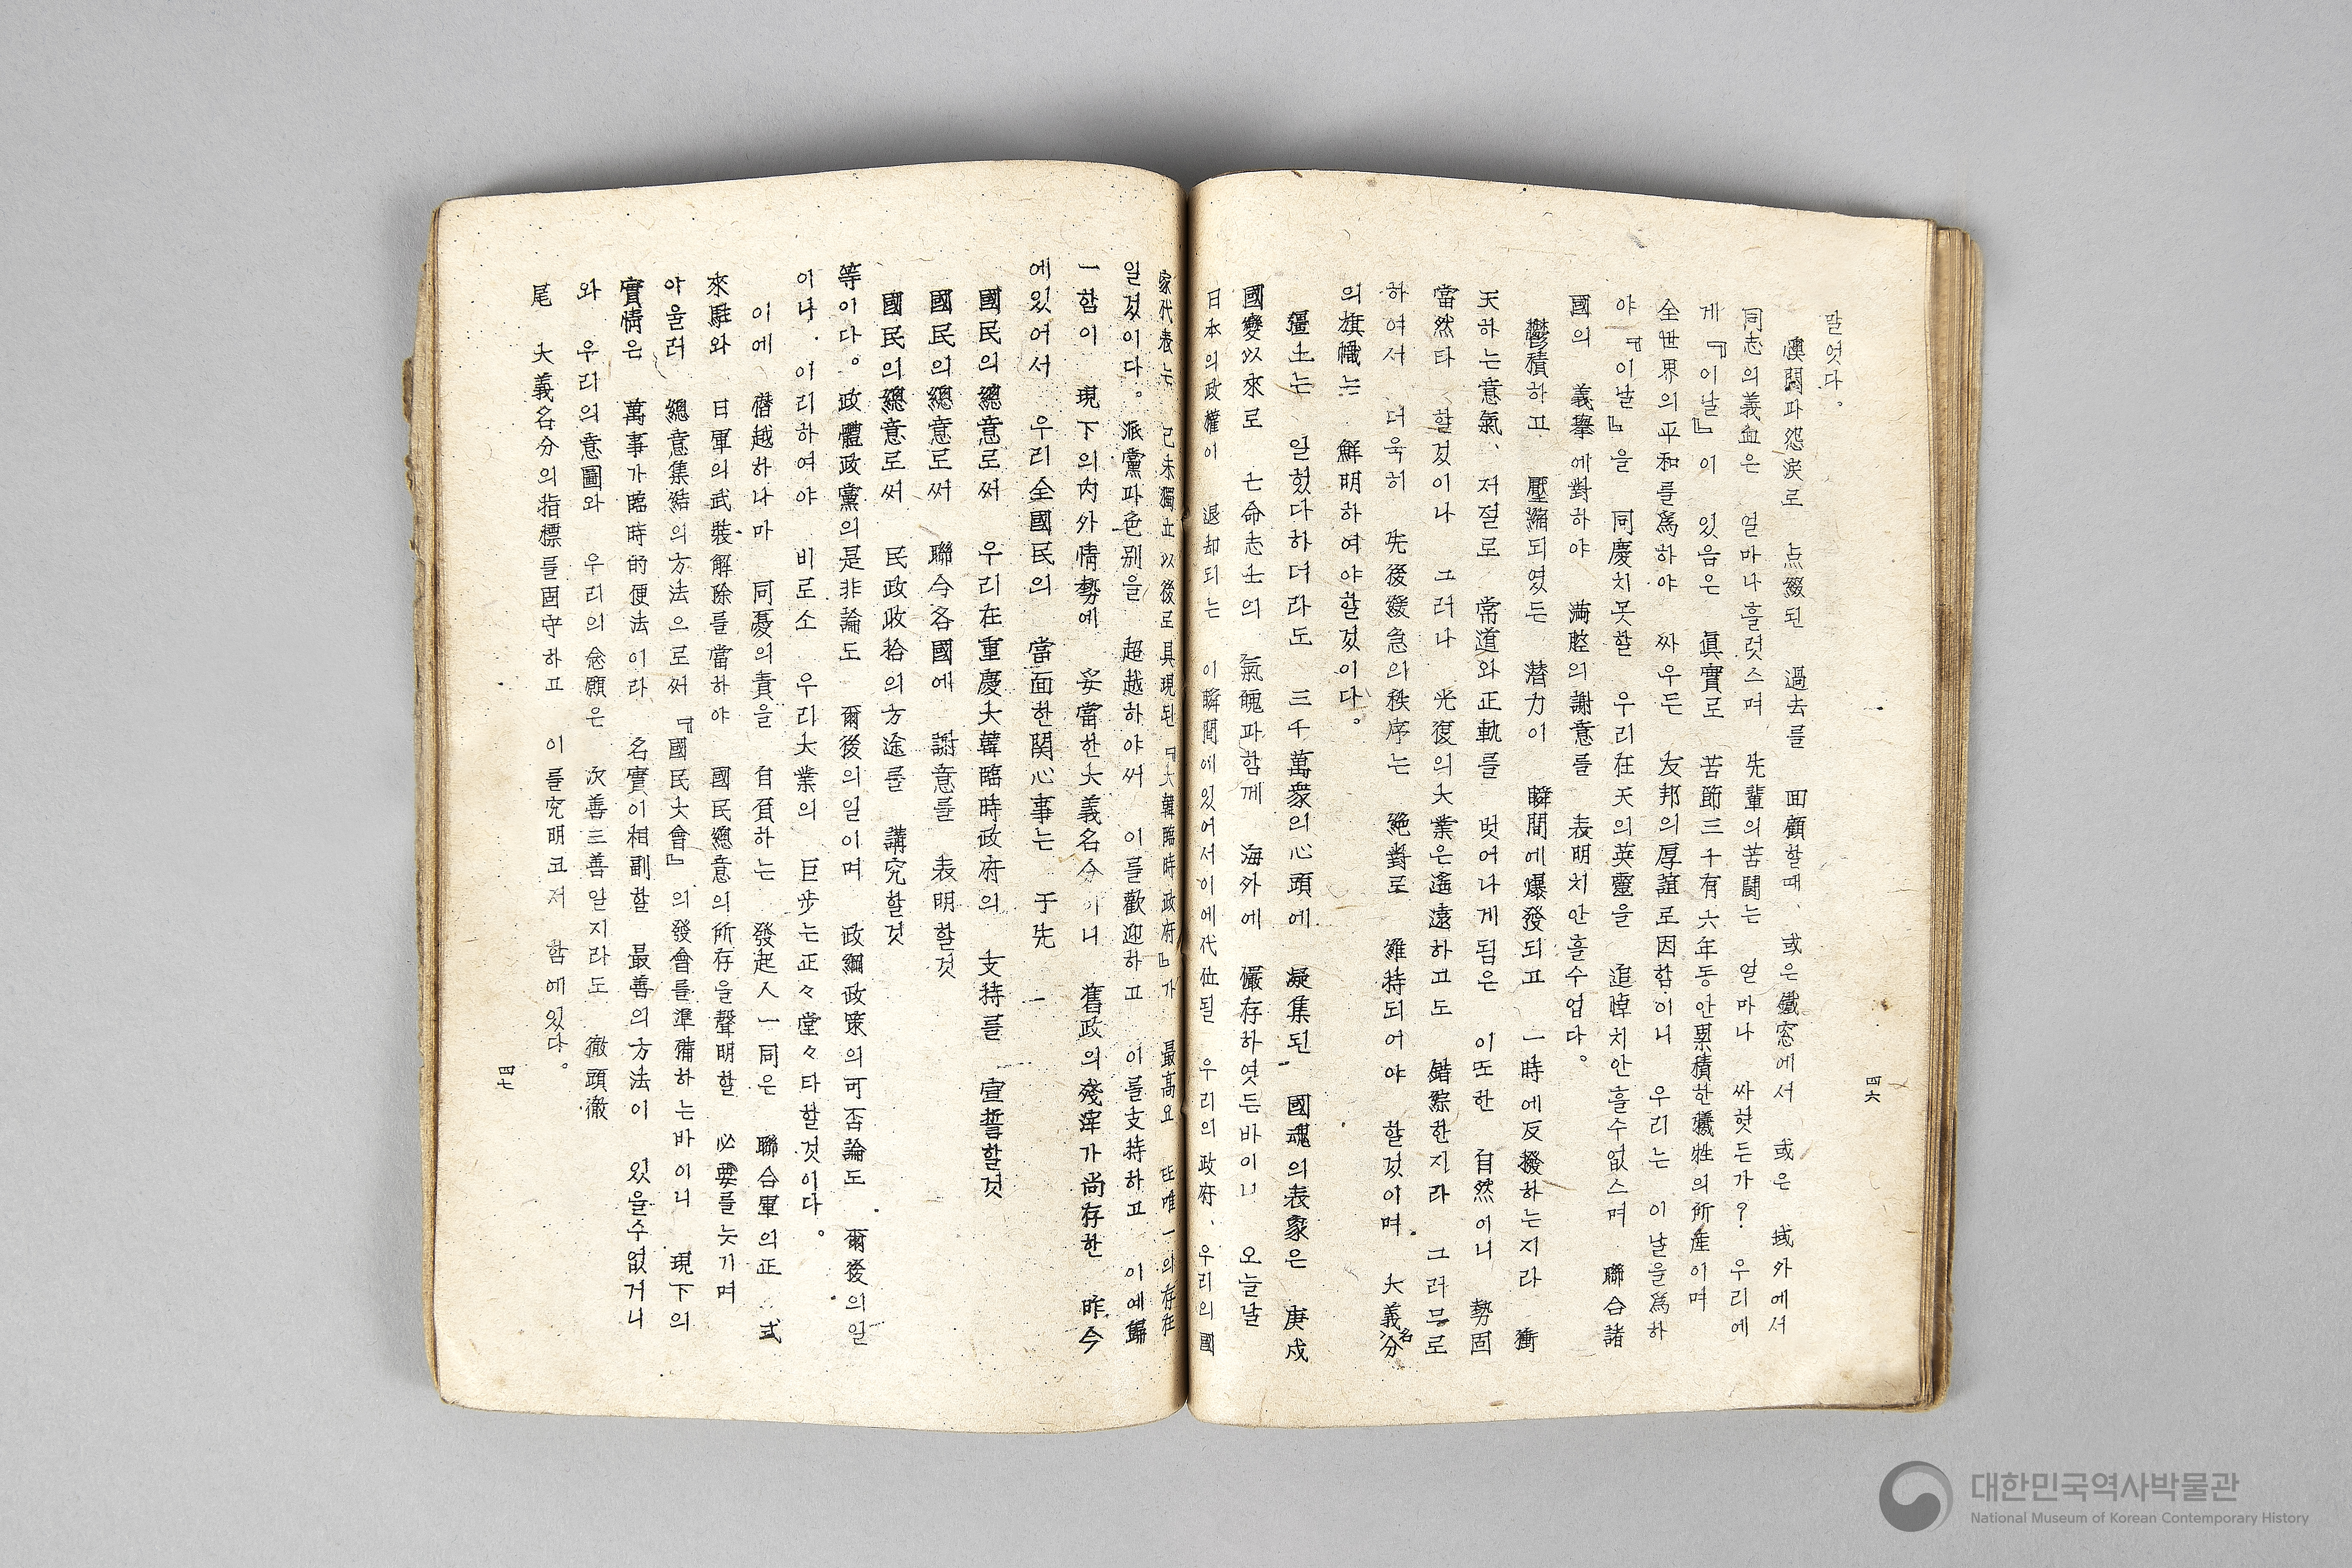 말엇다。
懊悶과怨淚로 点綴된 過去를 面顧할때、或은鐵窓에서 或은 域外에서
同志의義血은 얼마나흘럿스며 先輩의苦鬪는 얼마나 싸헛든가? 우리에
게『이날』이 있음은 眞實로 苦節三十有六年동안累積한犧牲의所産이며
全世界의平和를爲하야 싸우든 友邦의厚誼로因함이니 우리는 이날을爲하
야『이날』을 同慶치못할 우리在天의英靈을 追悼치안흘수없스며 聯合諸
國의 義擧에對하야 滿腔의謝意를 表明치안흘수업다。
鬱積하고 壓縮되였든 潜力이 瞬間에爆發되고 一時에反撥하는지라 衝
天하는意氣、저절로 常道와正軌를 벗어나게됨은 이또한 自然이니 勢固
當然타 할것이나 그러나 光復의大業은遙遠하고도 錯綜한지라 그러므로
하여서 더욱히 先後緩急의秩序는 絶對로 維持되어야 할것이며 大義名分
의旗幟는 鮮明하여야할것이다。
疆土는 일헜다하더라도 三千萬衆의心頭에 凝集된 國魂의表象은 庚戌
國變以來로 亡命志士의 氣魄과함께 海外에 儼存하엿든바이니 오늘날
日本의政權이 退却되는 이瞬間에있어서이에代位될 우리의政府、우리의國
家代表는 己未獨立以後로具現된『大韓臨時政府』가 最高요 또唯一의存在
일것이다。派黨과色別을 超越하야써 이를歡迎하고 이를支持하고 이에歸
一함이 現下의內外情勢에 妥當한大義名分이니 舊政의殘滓가尚存한 昨今
에있어서 우리全國民의 當面한関心事는 于先
國民의總意로써 우리在重慶大韓臨時政府의 支持를 宣誓할것
國民의總意로써 聯合各國에 謝意를 表明할것
國民의總意로써 民政收拾의方途를 講究할것
等이다。政體政黨의是非論도 爾後의일이며 政綱政策의可否論도 爾後의일
이나. 이리하여야 비로소 우리大業의 巨步는正々堂々타할것이다。
이에 僭越하나마 同憂의責을 自負하는 發起人一同은 聯合軍의正式
來駐와 日軍의武裝解除를當하야 國民總意의所存을聲明할 必要를늣기며
아울러 總意集結의方法으로써『國民大會』의發會를準備하는바이니 現下의
實情은 萬事가臨時的便法이라 名實이相副할 最善의方法이 있을수없거니
와 우리의意圖와 우리의念願은 次善三善일지라도 徹頭徹
尾 大義名分의指標를固守하고 이를究明코저 함에있다。
四六
四七
대한민국역사박물관
National Museum of Korean Contemporary History